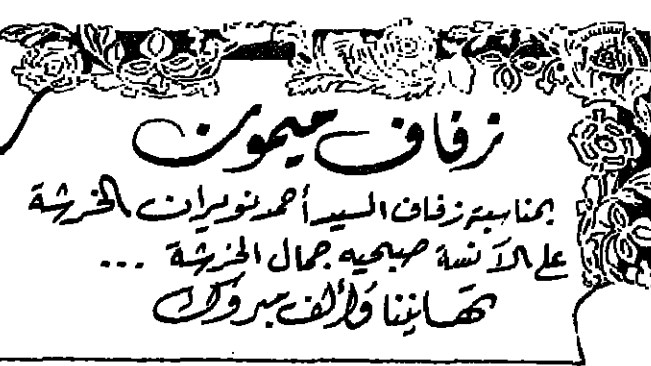 زفاف ميمون
بمناسبة زفاف السيد أحمد نويران الخرشة
على الآنسة صبحيه جمال الخرشة ...
تهانينا وألف مبروك